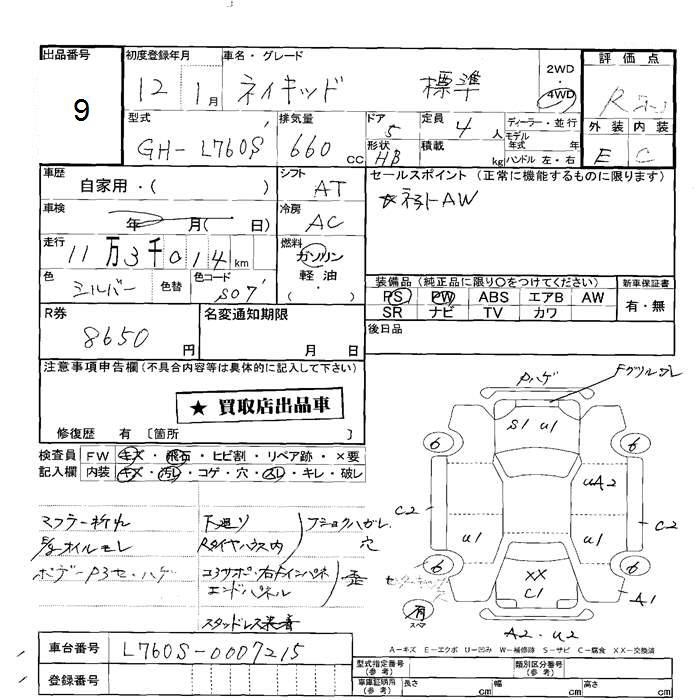 出品番号 初度登録年月 車名・グレード 評価点
9 12 1月 ネイキッド 標準 2WD・4WD R
型式 排気量 ドア 定員 ディーラー・並行 外装 内装
GH-L760S 660cc 5 4人 モデル年式 年 E C
形状 HB 積載 kg ハンドル 左・右
車歴 自家用・( ) シフト AT セールスポイント (正常に機能するものに限ります)
車検 年 月( 日) 冷房 AC AW
走行 11万3千014km 燃料 ガソリン 軽油 ・
色 シルバー 色替 色コード S07 装備品(純正品に限り○をつけてください) 新車保証書
PS PW ABS エアB AW 有・無
SR ナビ TV カワ
R券 8650円 名変通知期限 月 日 後日品
注意事項申告欄(不具合内容等は具体的に記入して下さい)
★ 買取店出品車
修復歴 有 〔箇所 〕
検査員 FW キズ・飛石・ヒビ割・リペア跡・×要
記入欄 内装 キズ・汚レ・コゲ・穴・スレ・キレ・破レ
Pハゲ Fグリルカレ
S1 U1
6 6
UA2
C2 C2
U1 U1
6 6
XX
C1
A1
有 スペア
A2・U2
マフラー折れ 下廻り フショクハガレ
オイルモレ Rタイヤハウス内 穴
ボデーPスレ・ハゲ コアサポ・右インパネ 歪
エンドパネル
スタッドレス装着
A-キズ E-エクボ U-凹み W-補修跡 S-サビ C-腐食 XX-交換済
車台番号 L760S-0007215
型式指定番号(参考) 類別区分番号(参考)
登録番号 車庫証明用(参考) 長さ cm 幅 cm 高さ cm